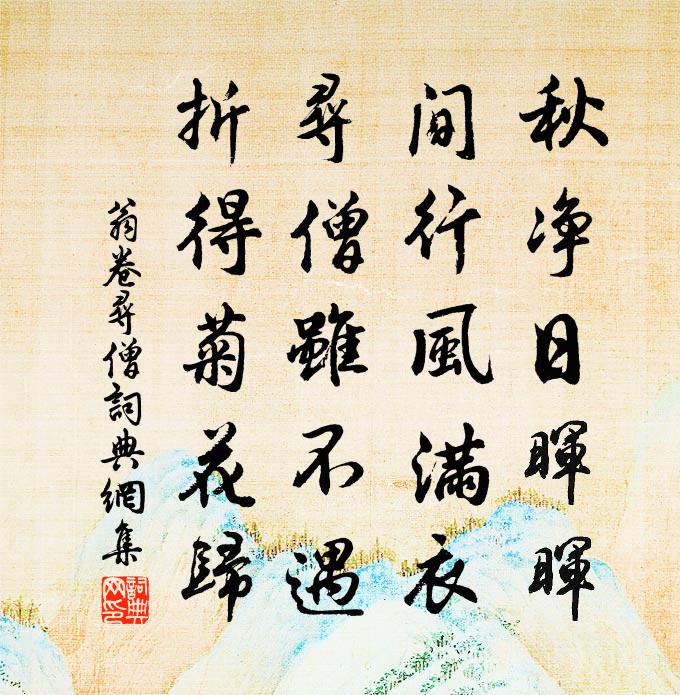 秋净日暉暉
間行風滿衣
尋僧雖不遇
折得菊花歸
翁卷尋僧詞典網集
詞典網印